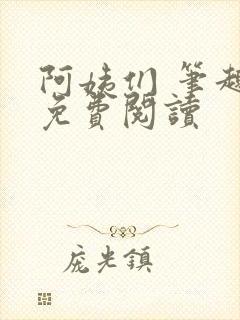 阿姨们 筆趣
免費閱讀
庞光鎮